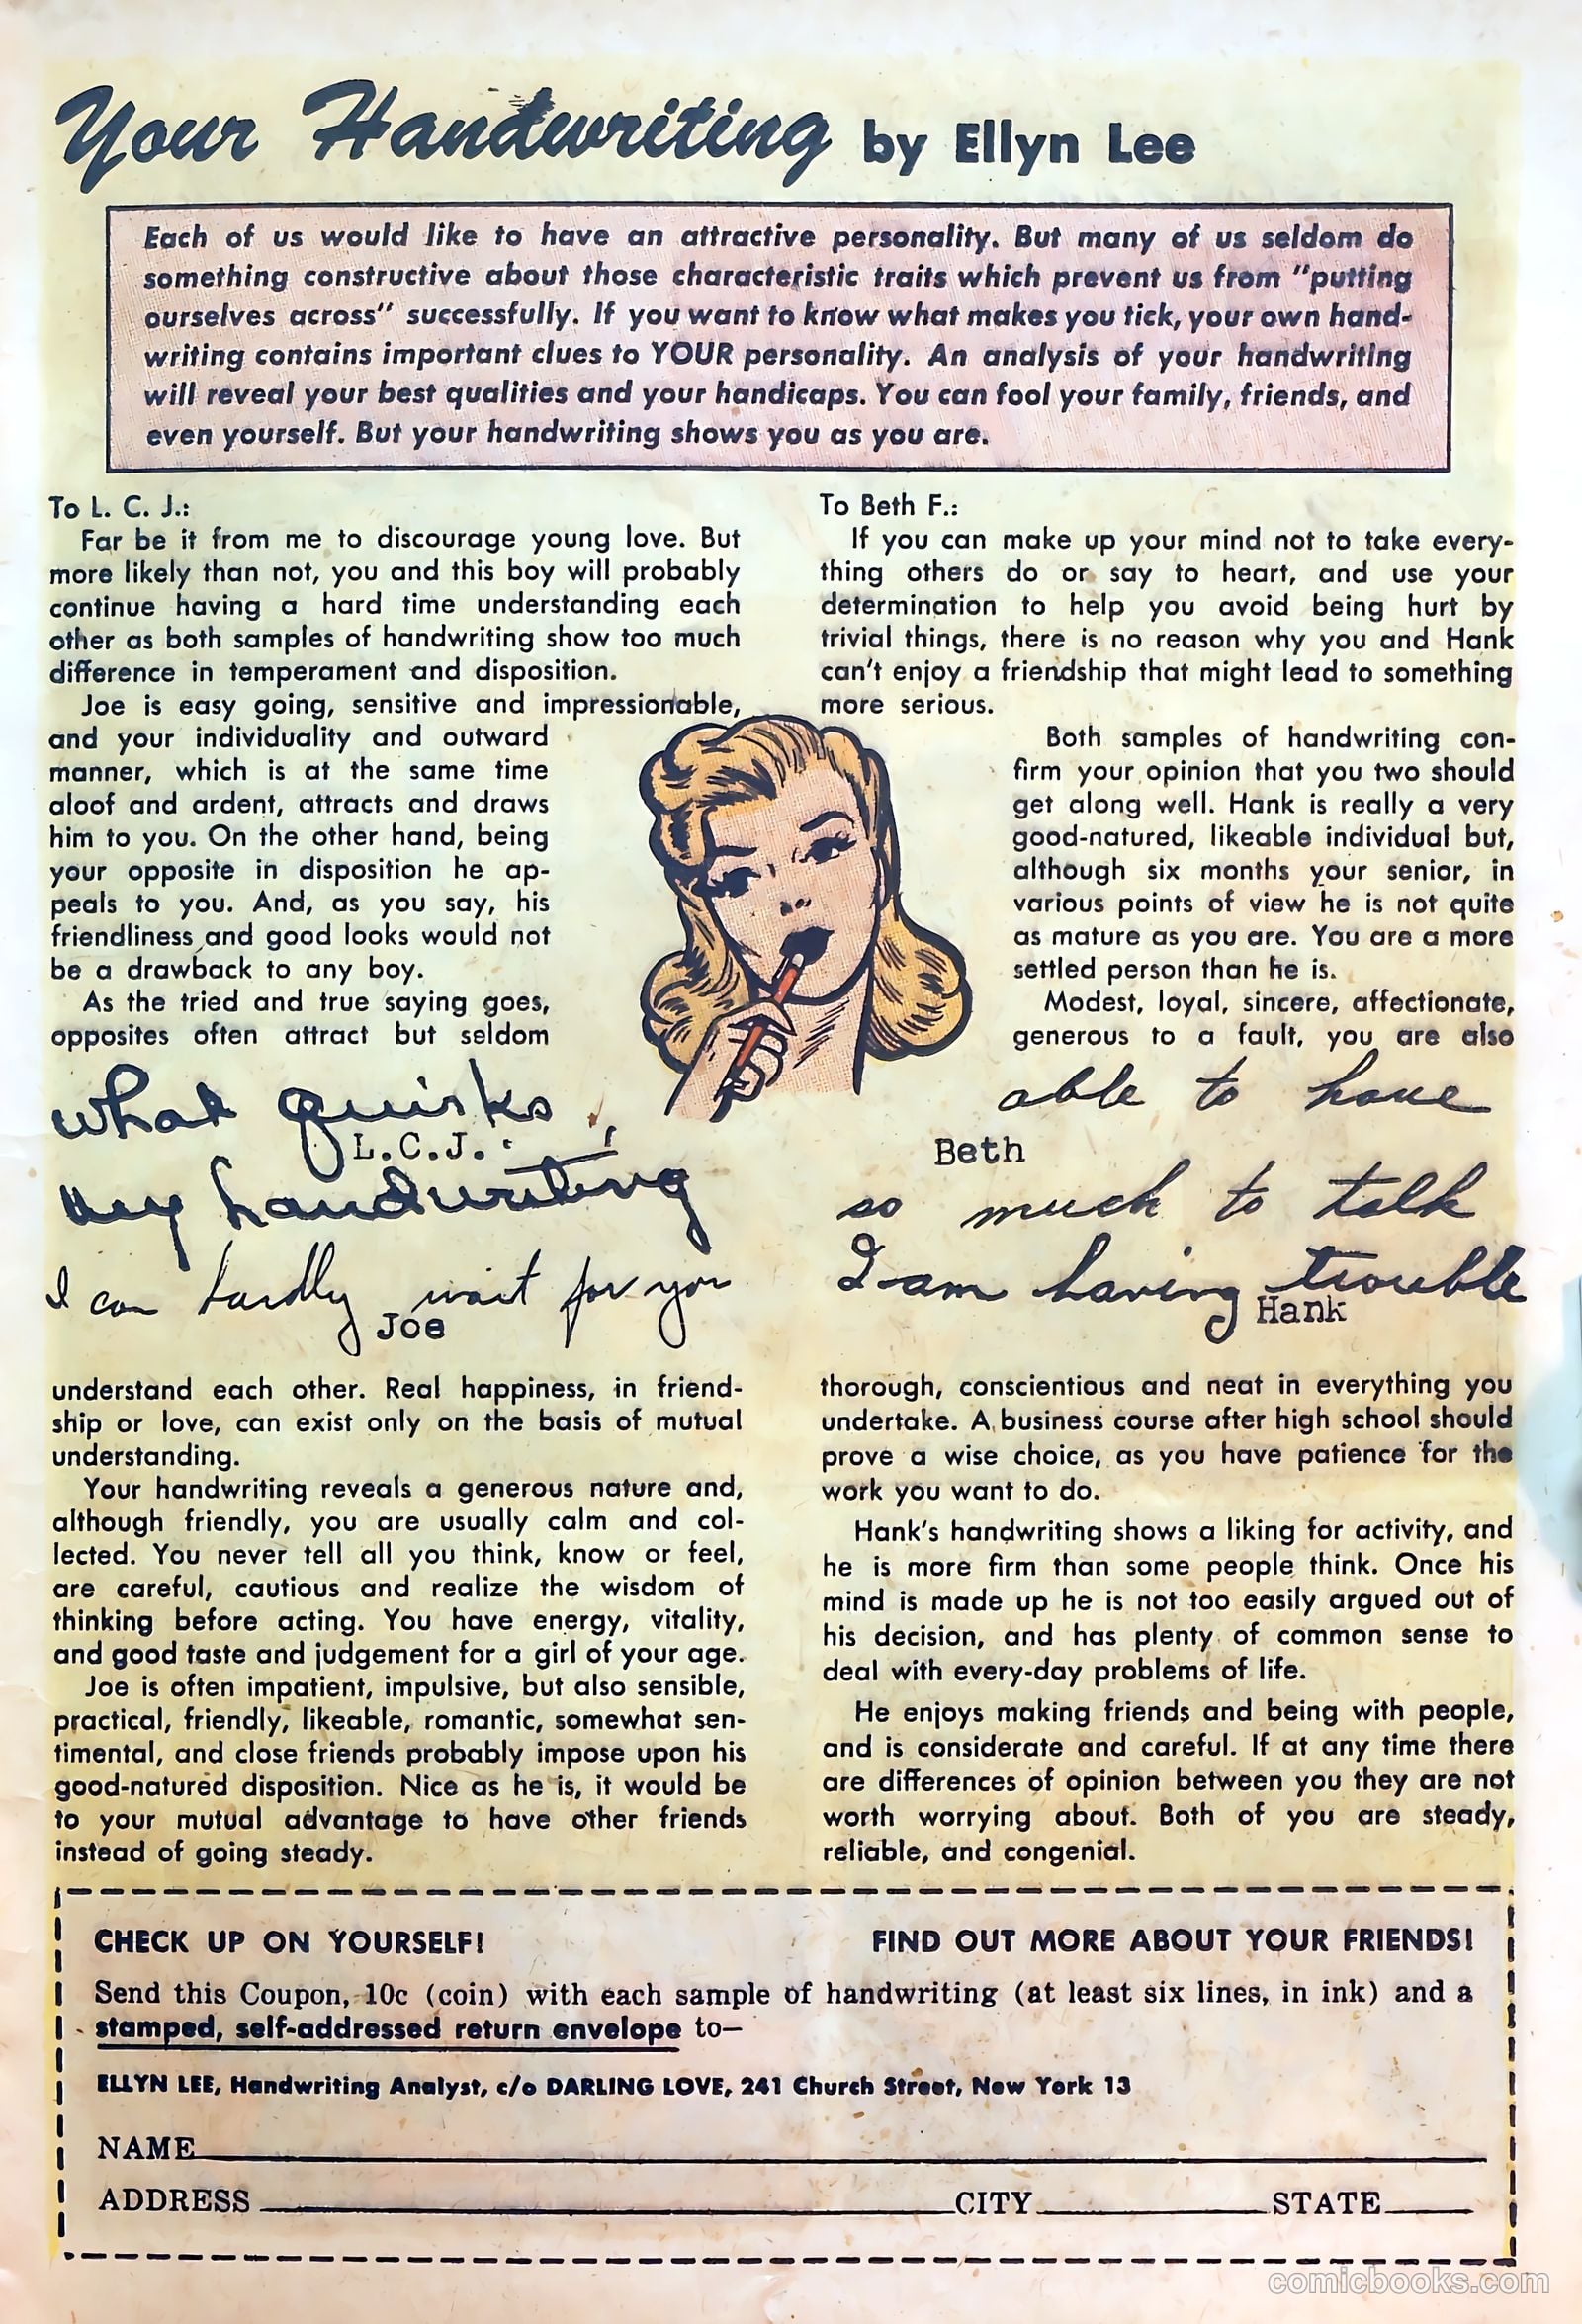 Your Handwriting by Ellyn Lee
Each of us would like to have an attractive personality. But many of us seldom do
something constructive about those characteristic traits which prevent us from "putting
ourselves across" successfully. If you want to know what makes you tick, your own hand-
writing contains important clues to YOUR personality. An analysis of your handwriting
will reveal your best qualities and your handicaps. You can fool your family, friends, and
even yourself. But your handwriting shows you as you are.
To L. C. J.:
Far be it from me to discourage young love. But
more likely than not, you and this boy will probably
continue having a hard time understanding each
other as both samples of handwriting show too much
difference in temperament and disposition.
Joe is easy going, sensitive and impressionable,
and your individuality and outward
manner, which is at the same time
aloof and ardent, attracts and draws
him to you. On the other hand, being
your opposite in disposition he ap-
peals to you. And, as you say, his
friendliness and good looks would not
be a drawback to any boy.
As the tried and true saying goes,
opposites often attract but seldom
what quirks
L.C.J.
my handwriting
I can hardly wait for you
Joe
understand each other. Real happiness, in friend-
ship or love, can exist only on the basis of mutual
understanding.
Your handwriting reveals a generous nature and,
although friendly, you are usually calm and col-
lected. You never tell all you think, know or feel,
are careful, cautious and realize the wisdom of
thinking before acting. You have energy, vitality,
and good taste and judgement for a girl of your age.
Joe is often impatient, impulsive, but also sensible,
practical, friendly, likeable, romantic, somewhat sen-
timental, and close friends probably impose upon his
good-natured disposition. Nice as he is, it would be
to your mutual advantage to have other friends
instead of going steady.
To Beth F.:
If you can make up your mind not to take every-
thing others do or say to heart, and use your
determination to help you avoid being hurt by
trivial things, there is no reason why you and Hank
can't enjoy a friendship that might lead to something
more serious.
Both samples of handwriting con-
firm your opinion that you two should
get along well. Hank is really a very
good-natured, likeable individual but,
although six months your senior, in
various points of view he is not quite
as mature as you are. You are a more
settled person than he is.
Modest, loyal, sincere, affectionate,
generous to a fault, you are also
able to have
Beth
so much to talk
I am having trouble
Hank
thorough, conscientious and neat in everything you
undertake. A business course after high school should
prove a wise choice, as you have patience for the
work you want to do.
Hank's handwriting shows a liking for activity, and
he is more firm than some people think. Once his
mind is made up he is not too easily argued out of
his decision, and has plenty of common sense to
deal with every-day problems of life.
He enjoys making friends and being with people,
and is considerate and careful. If at any time there
are differences of opinion between you they are not
worth worrying about. Both of you are steady,
reliable, and congenial.
CHECK UP ON YOURSELF! FIND OUT MORE ABOUT YOUR FRIENDS!
Send this Coupon, 10c (coin) with each sample of handwriting (at least six lines, in ink) and a
stamped, self-addressed return envelope to—
ELLYN LEE, Handwriting Analyst, c/o DARLING LOVE, 241 Church Street, New York 13
NAME
ADDRESS CITY STATE
comicbooks.com